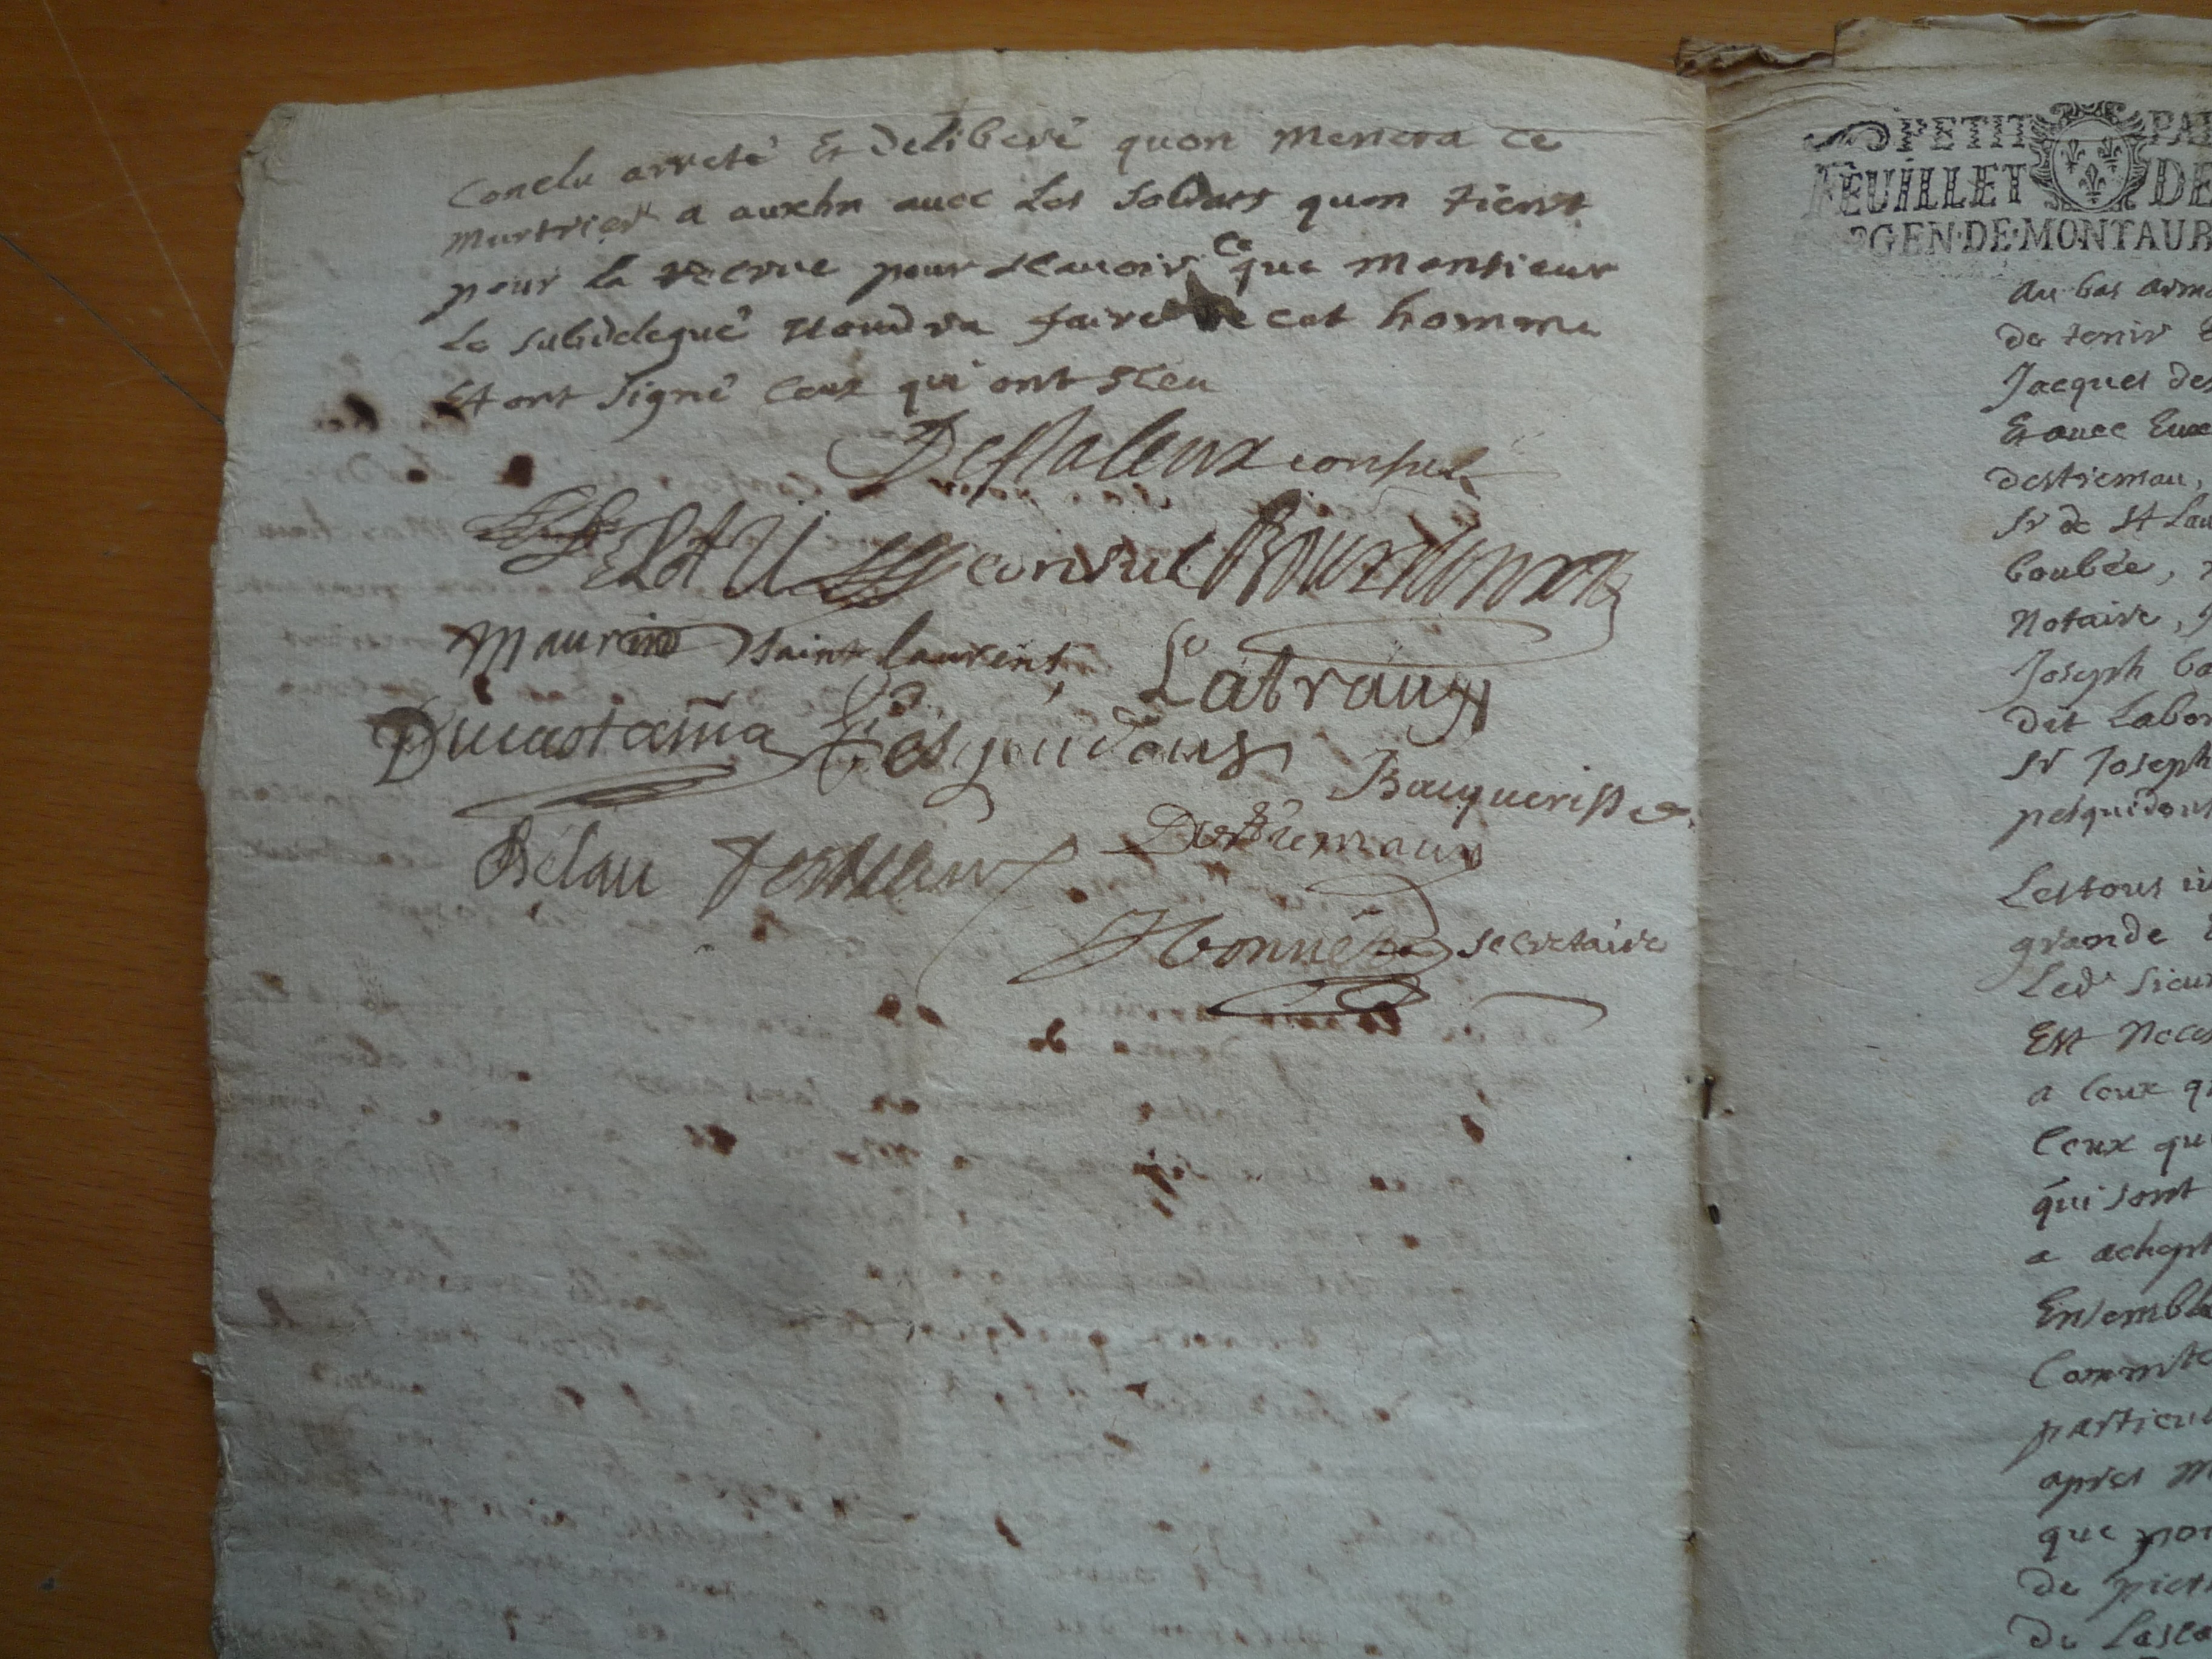 Conclu arreté Et deliberé quon Menera ce
murtrier a auxhn auec Les soldats quon tient
pour la recrue pour scauoir ce que monsieur
Le subdelegué uoudra faire de cet homme
Et ont signé Ceux qui ont sceu
consul
consul Bourdonnat
Maurin Saint laurent, Latraux
Ducastaina
Bauquerisse
Belau Desttiemau
secretaire
PETIT PA
FEUILLET DE
GEN·DE·MONTAUB
Au bas arma
de tenir
Jacques de
Et auec Eux
destiemau,
Sr de St Lau
boubée,
Notaire,
Joseph bo
dit Labor
Sr Joseph
pesquidous
Lestous
grande
Led Sieur
Est Neces
a Ceux q
Ceux qu
qui sont
a achept
Ensemble
Comm
particul
apres m
que pour
de piet
Du Lasca